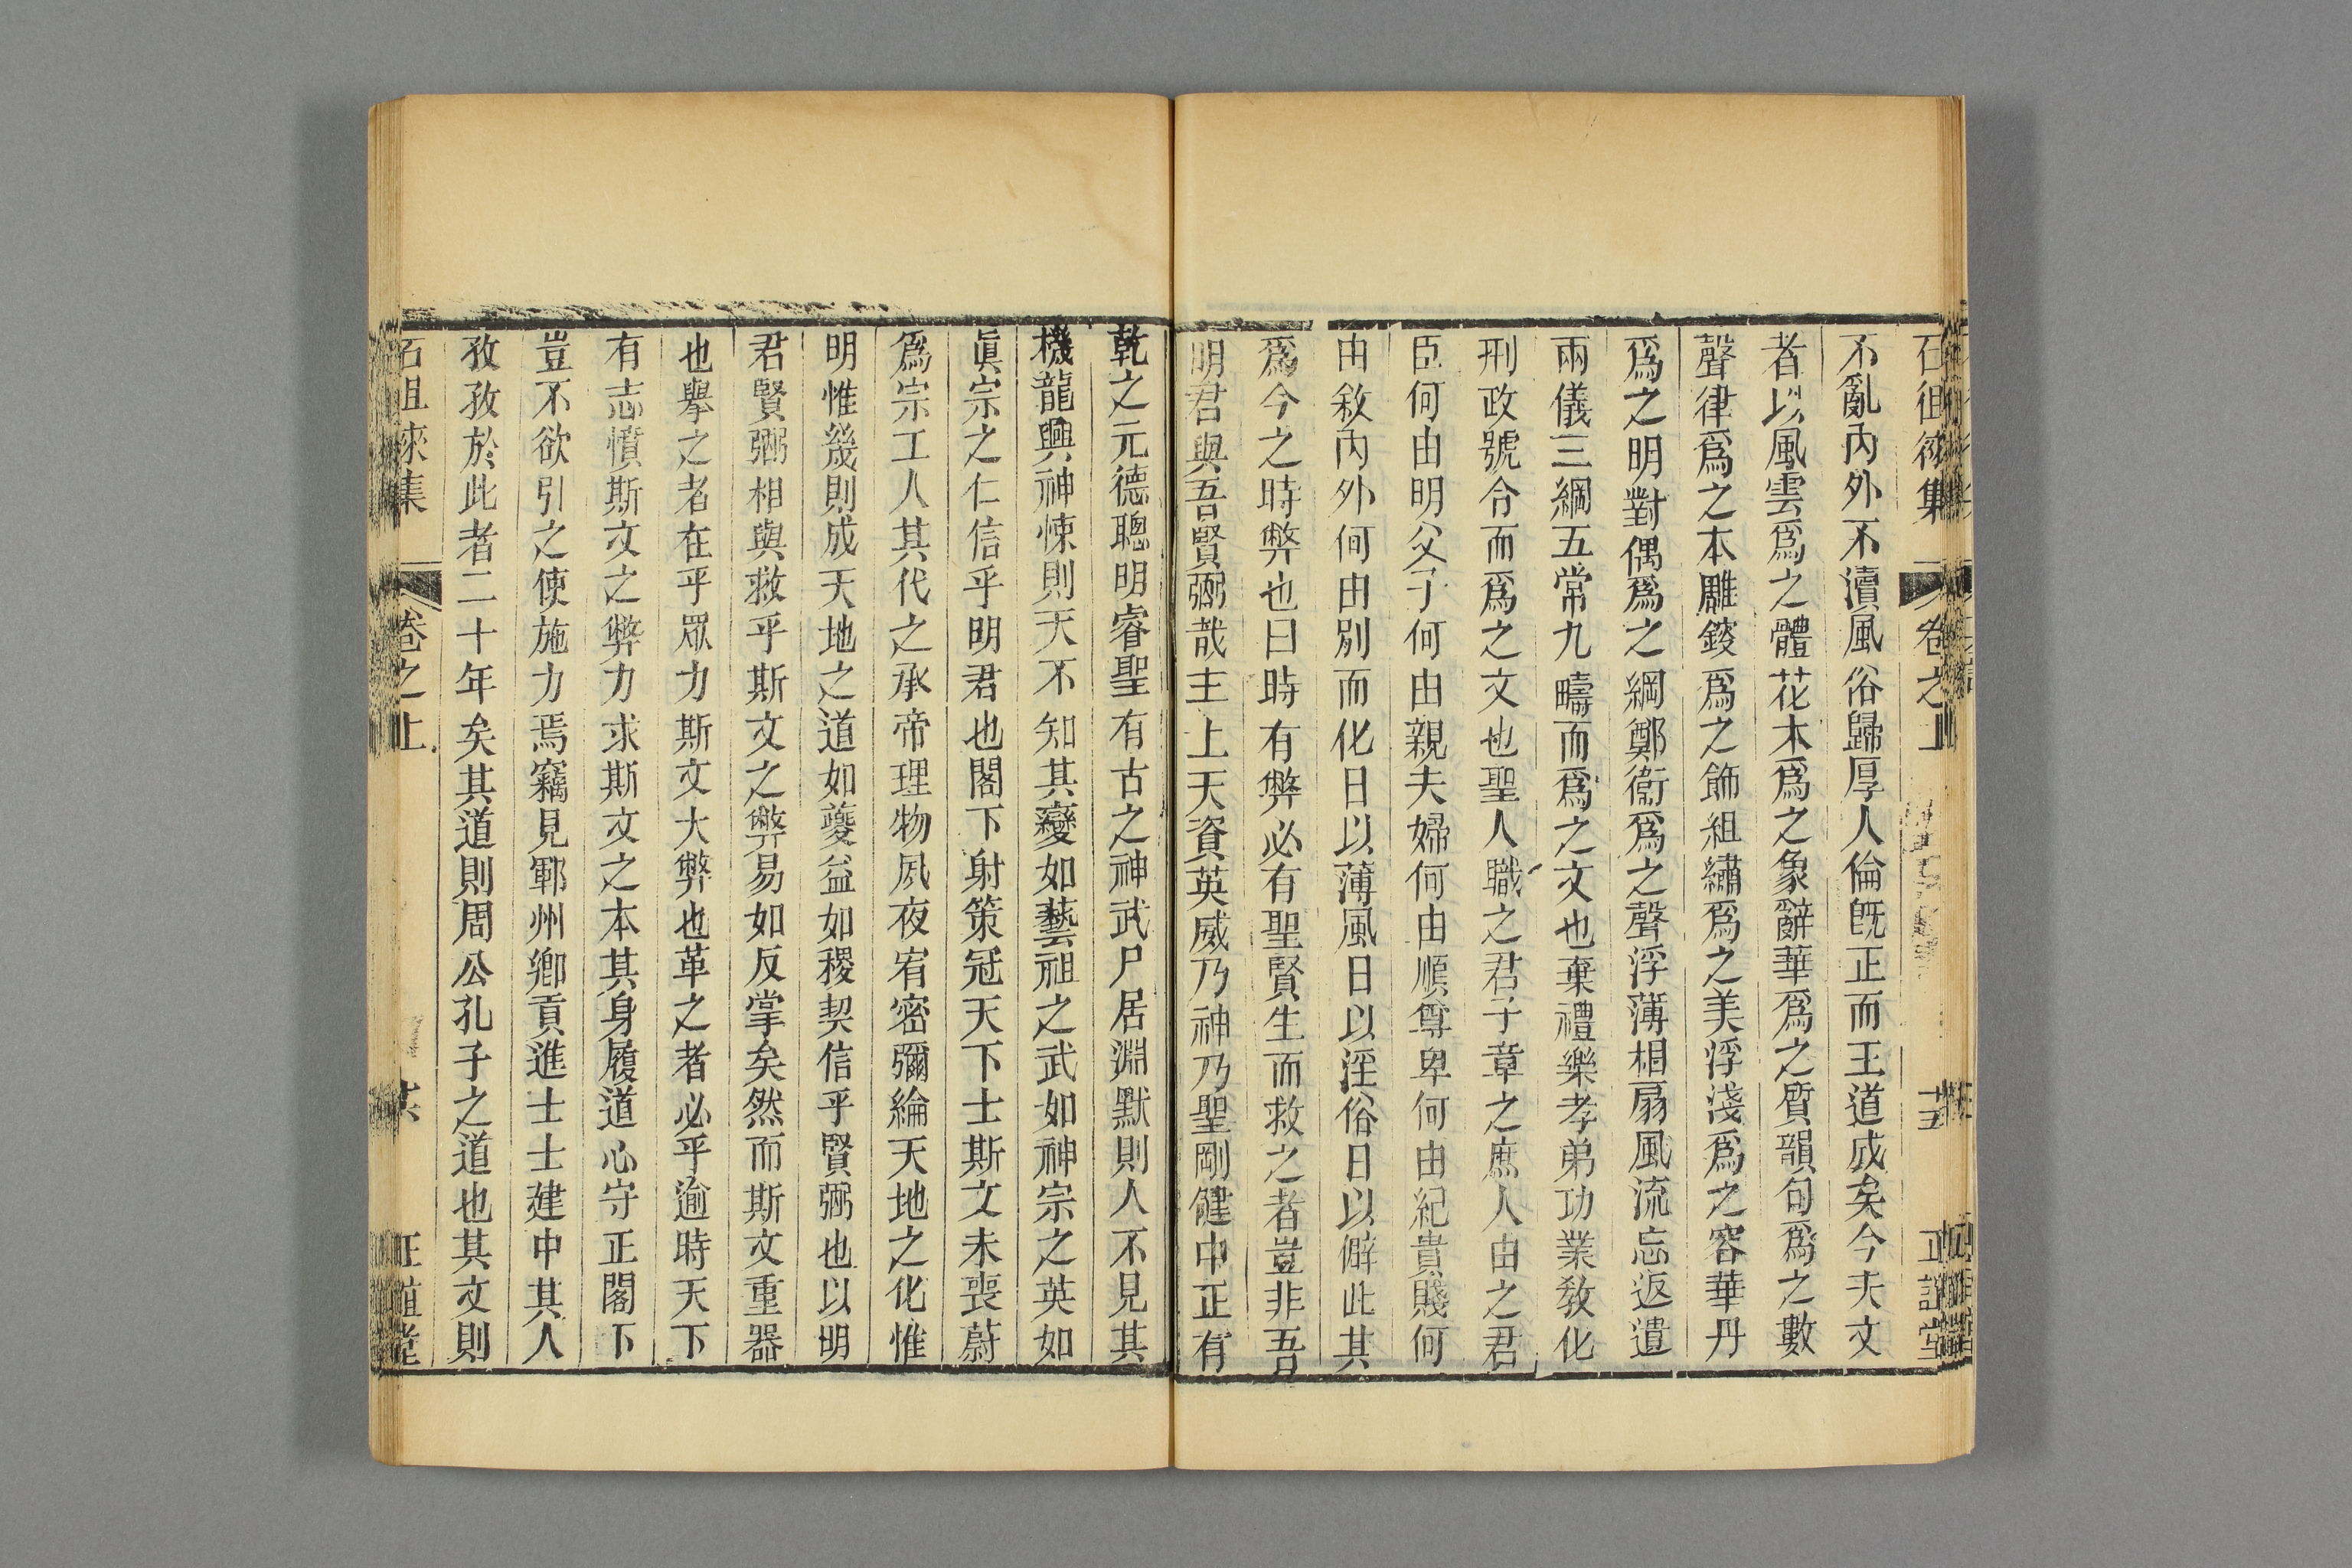 石徂徠集 卷之上 十五 正誼堂
不亂內外不瀆風俗歸厚人倫旣正而王道成矣今夫文
者以風雲爲之體花木爲之象辭華爲之質韻句爲之數
聲律爲之本雕鎪爲之飾組繡爲之美浮淺爲之容華丹
爲之明對偶爲之綱鄭衞爲之聲浮薄相扇風流忘返遺
兩儀三綱五常九疇而爲之文也棄禮樂孝弟功業敎化
刑政號令而爲之文也聖人職之君子章之庶人由之君
臣何由明父子何由親夫婦何由順尊卑何由紀貴賤何
由敘內外何由別而化日以薄風日以淫俗日以僻此其
爲今之時弊也曰時有弊必有聖賢生而救之者豈非吾
明君與吾賢弼哉主上天資英威乃神乃聖剛健中正有
乾之元德聰明睿聖有古之神武尸居淵默則人不見其
機龍興神悚則天不知其變如藝祖之武如神宗之英如
眞宗之仁信乎明君也閣下射策冠天下士斯文未喪蔚
爲宗工人其代之承帝理物夙夜宥密彌綸天地之化惟
明惟幾則成天地之道如夔益如稷契信乎賢弼也以明
君賢弼相與救乎斯文之弊易如反掌矣然而斯文重器
也舉之者在乎眾力斯文大弊也革之者必乎逾時天下
有志憤斯文之弊力求斯文之本其身履道心守正閣下
豈不欲引之使施力焉竊見鄆州鄉貢進士士建中其人
孜孜於此者二十年矣其道則周公孔子之道也其文則
石徂徠集 卷之上 正誼堂